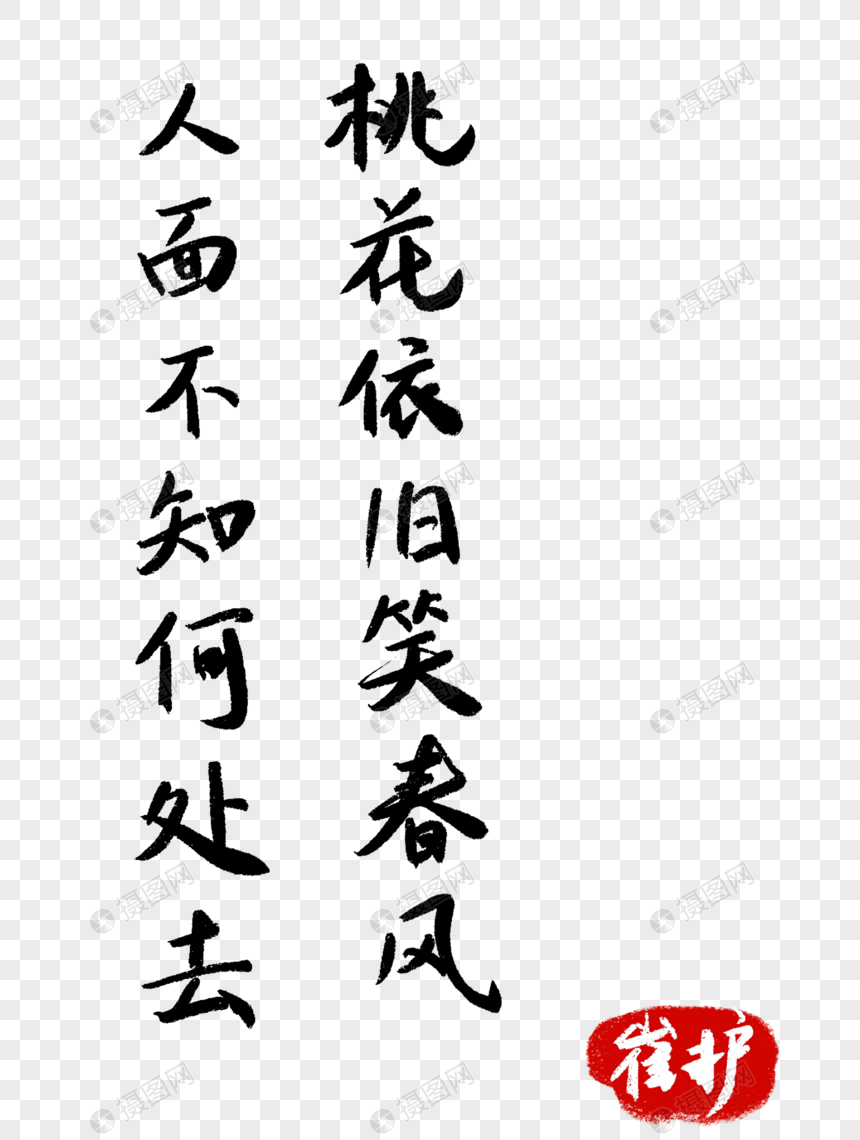 人面不知何处去
桃花依旧笑春风
崔护
摄图网